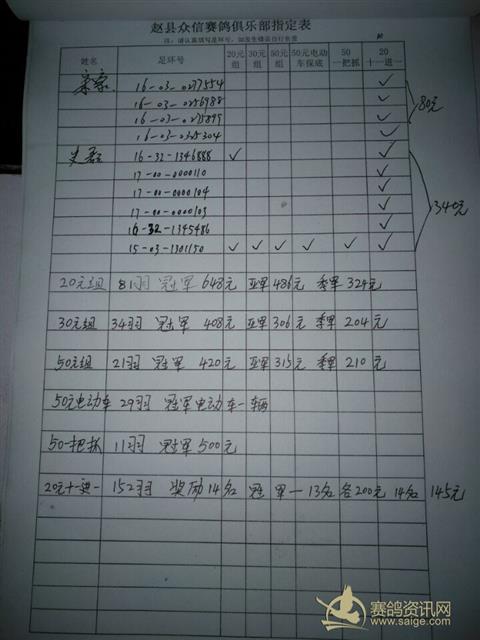 赵县众信赛鸽俱乐部指定表
注：请认真填写足环号，如发生错误自行负责
姓名 足环号 20元组 30元组 50元组 50元电动车保底 50一把抓 20十一进一
16-03-0277554 ✓
16-03-0256988 ✓
16-03-0275899 ✓
16-03-0325304 ✓
80元
16-32-1346888 ✓ ✓
17-00-0000110 ✓
17-00-0000104 ✓
17-00-0000103 ✓
16-32-1345486 ✓
15-03-1301150 ✓ ✓ ✓ ✓ ✓ ✓
340元
20元组 81羽 冠军 648元 亚军 486元 季军 324元
30元组 34羽 冠军 408元 亚军 306元 季军 204元
50元组 21羽 冠军 420元 亚军 315元 季军 210元
50元电动车 29羽 冠军电动车一辆
50一把抓 11羽 冠军 500元
20元十一进一 152羽 奖励14名 冠军一13名各200元 14名 145元
赛鸽资讯网
www.saige.com